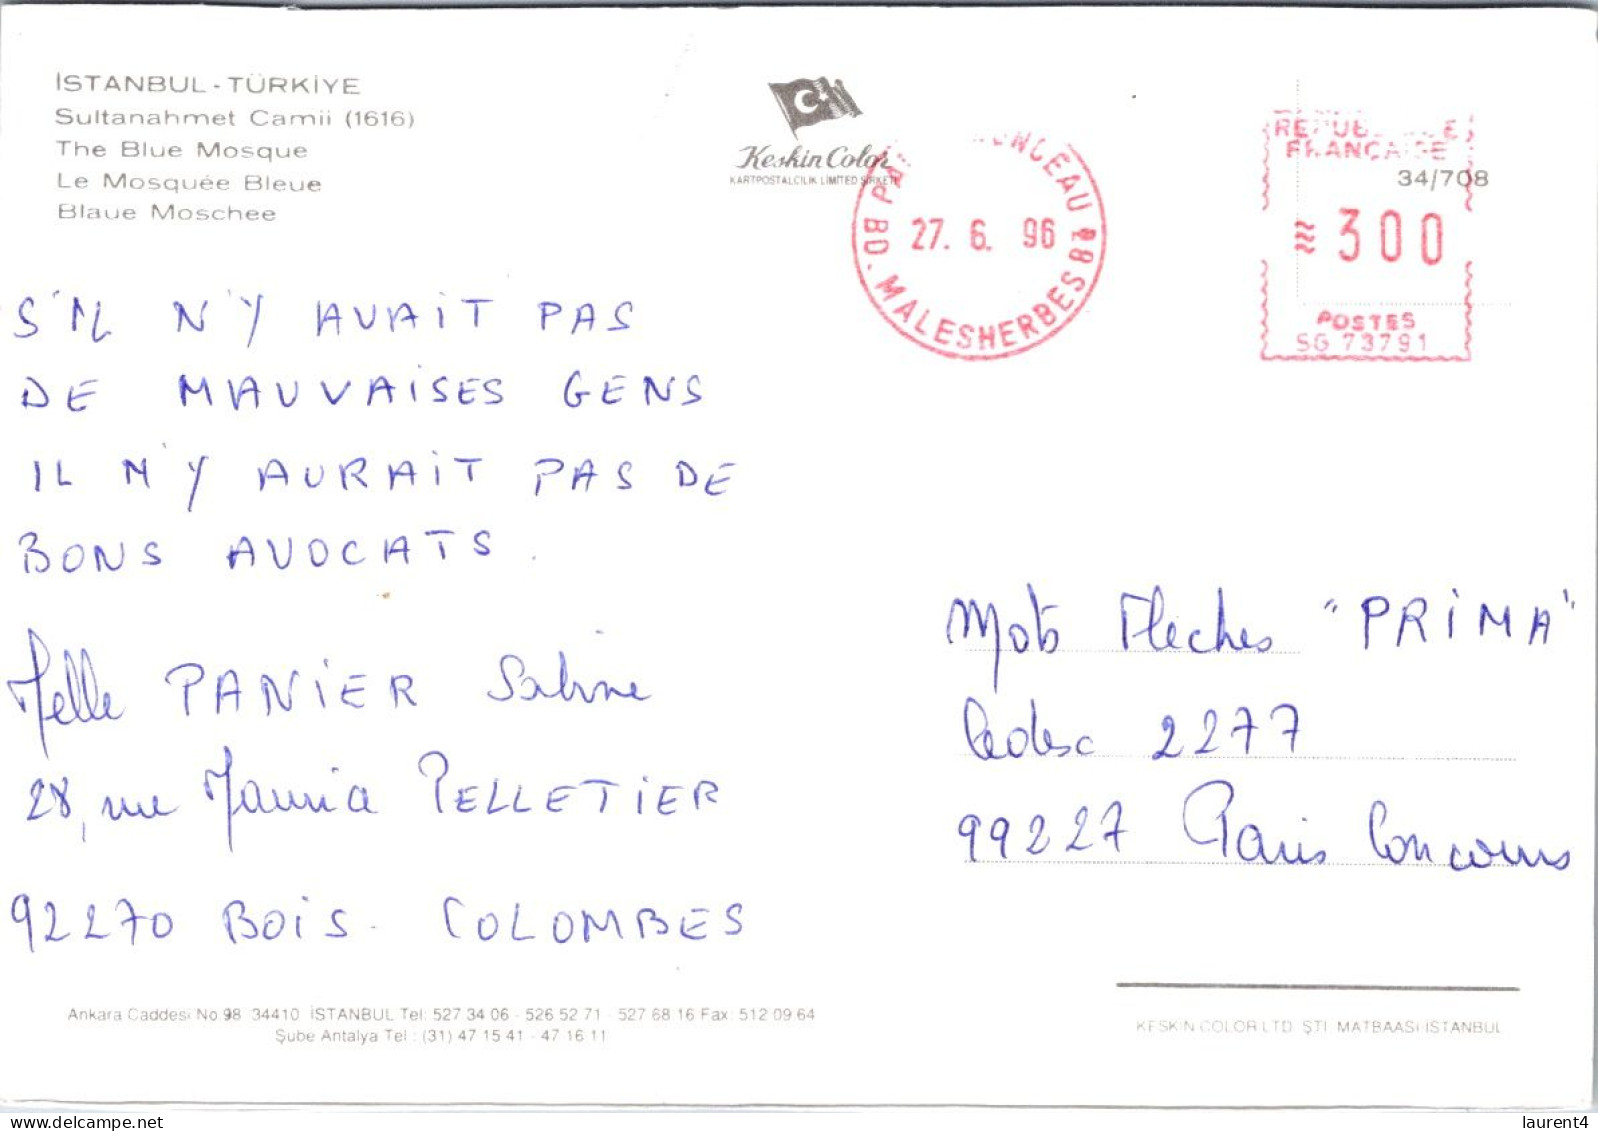 İSTANBUL - TÜRKİYE
Sultanahmet Camii (1616)
The Blue Mosque
Le Mosquée Bleue
Blaue Moschee
Keskin Color
KARTPOSTALCILIK LIMITED ŞİRKETİ
BD. MALESHERBES
27. 6. 96
FRANÇAISE
34/708
300
POSTES
SG 73791
S'IL N'Y AVAIT PAS
DE MAUVAISES GENS
IL N'Y AURAIT PAS DE
BONS AVOCATS.
Melle PANIER Sabine
28, rue PELLETIER
92270 BOIS-COLOMBES
Mots Fleches "PRIMA"
Cedex 2277
99227 Paris Concours
Ankara Caddesi No.98 34410 İSTANBUL Tel: 527 34 06 - 526 52 71 - 527 68 16 Fax: 512 09 64
Şube Antalya Tel : (31) 47 15 41 - 47 16 11
KESKİN COLOR LTD. ŞTİ. MATBAASI-İSTANBUL
laurent4